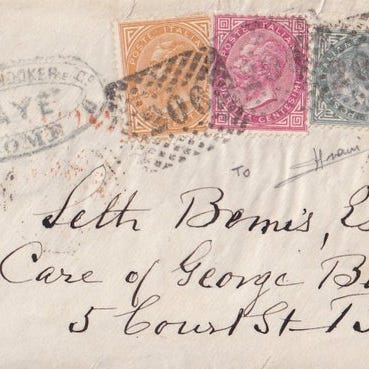 POSTE ITALIANE
POSTE ITALIANE
CENTESIMI
OOKER & Co
AYE
ROME
TO
Seth Bemis, Es
Care of George B
5 Court St